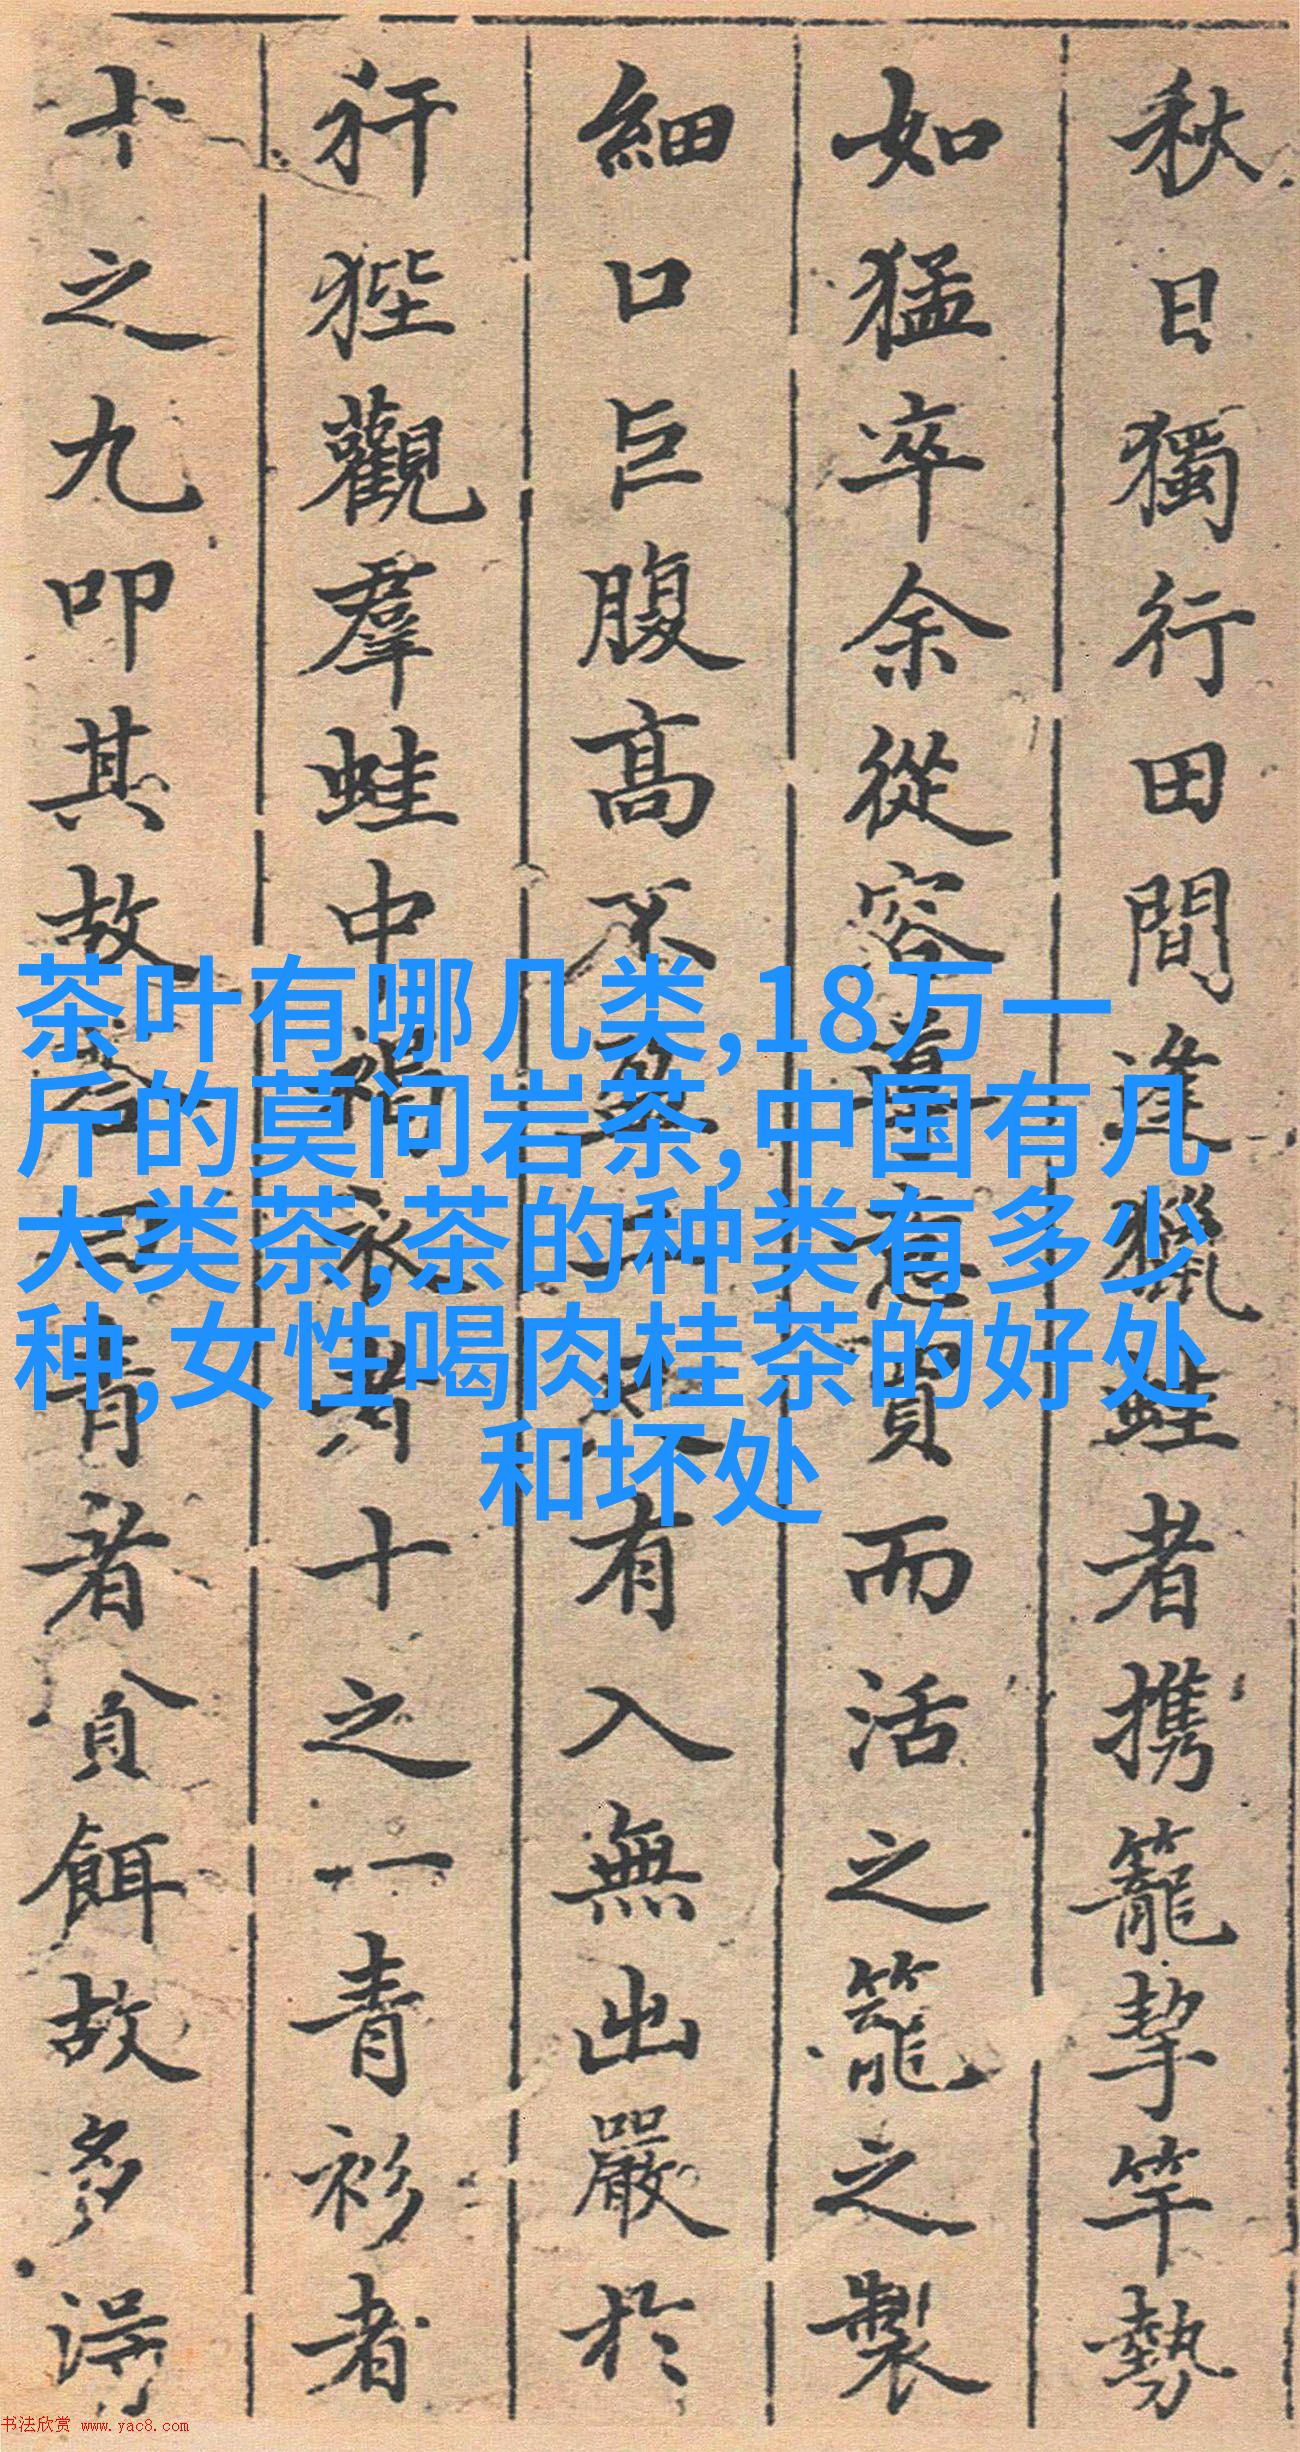 秋日獨行田間逢獵蛙者携籠挈竿勢
如猛卒余從容意買而活之籠之製
細口巨腹高不盈有入無出嚴於
犴狴觀羣蛙中褐衣者十之一青衫者
十之九叩其故曰青者貪餌故多得
茶叶有哪几类,18万一
斤的莫问岩茶,中国有几
大类茶,茶的种类有多少
种,女性喝肉桂茶的好处
和坏处
书法欣赏 www.yac8.com